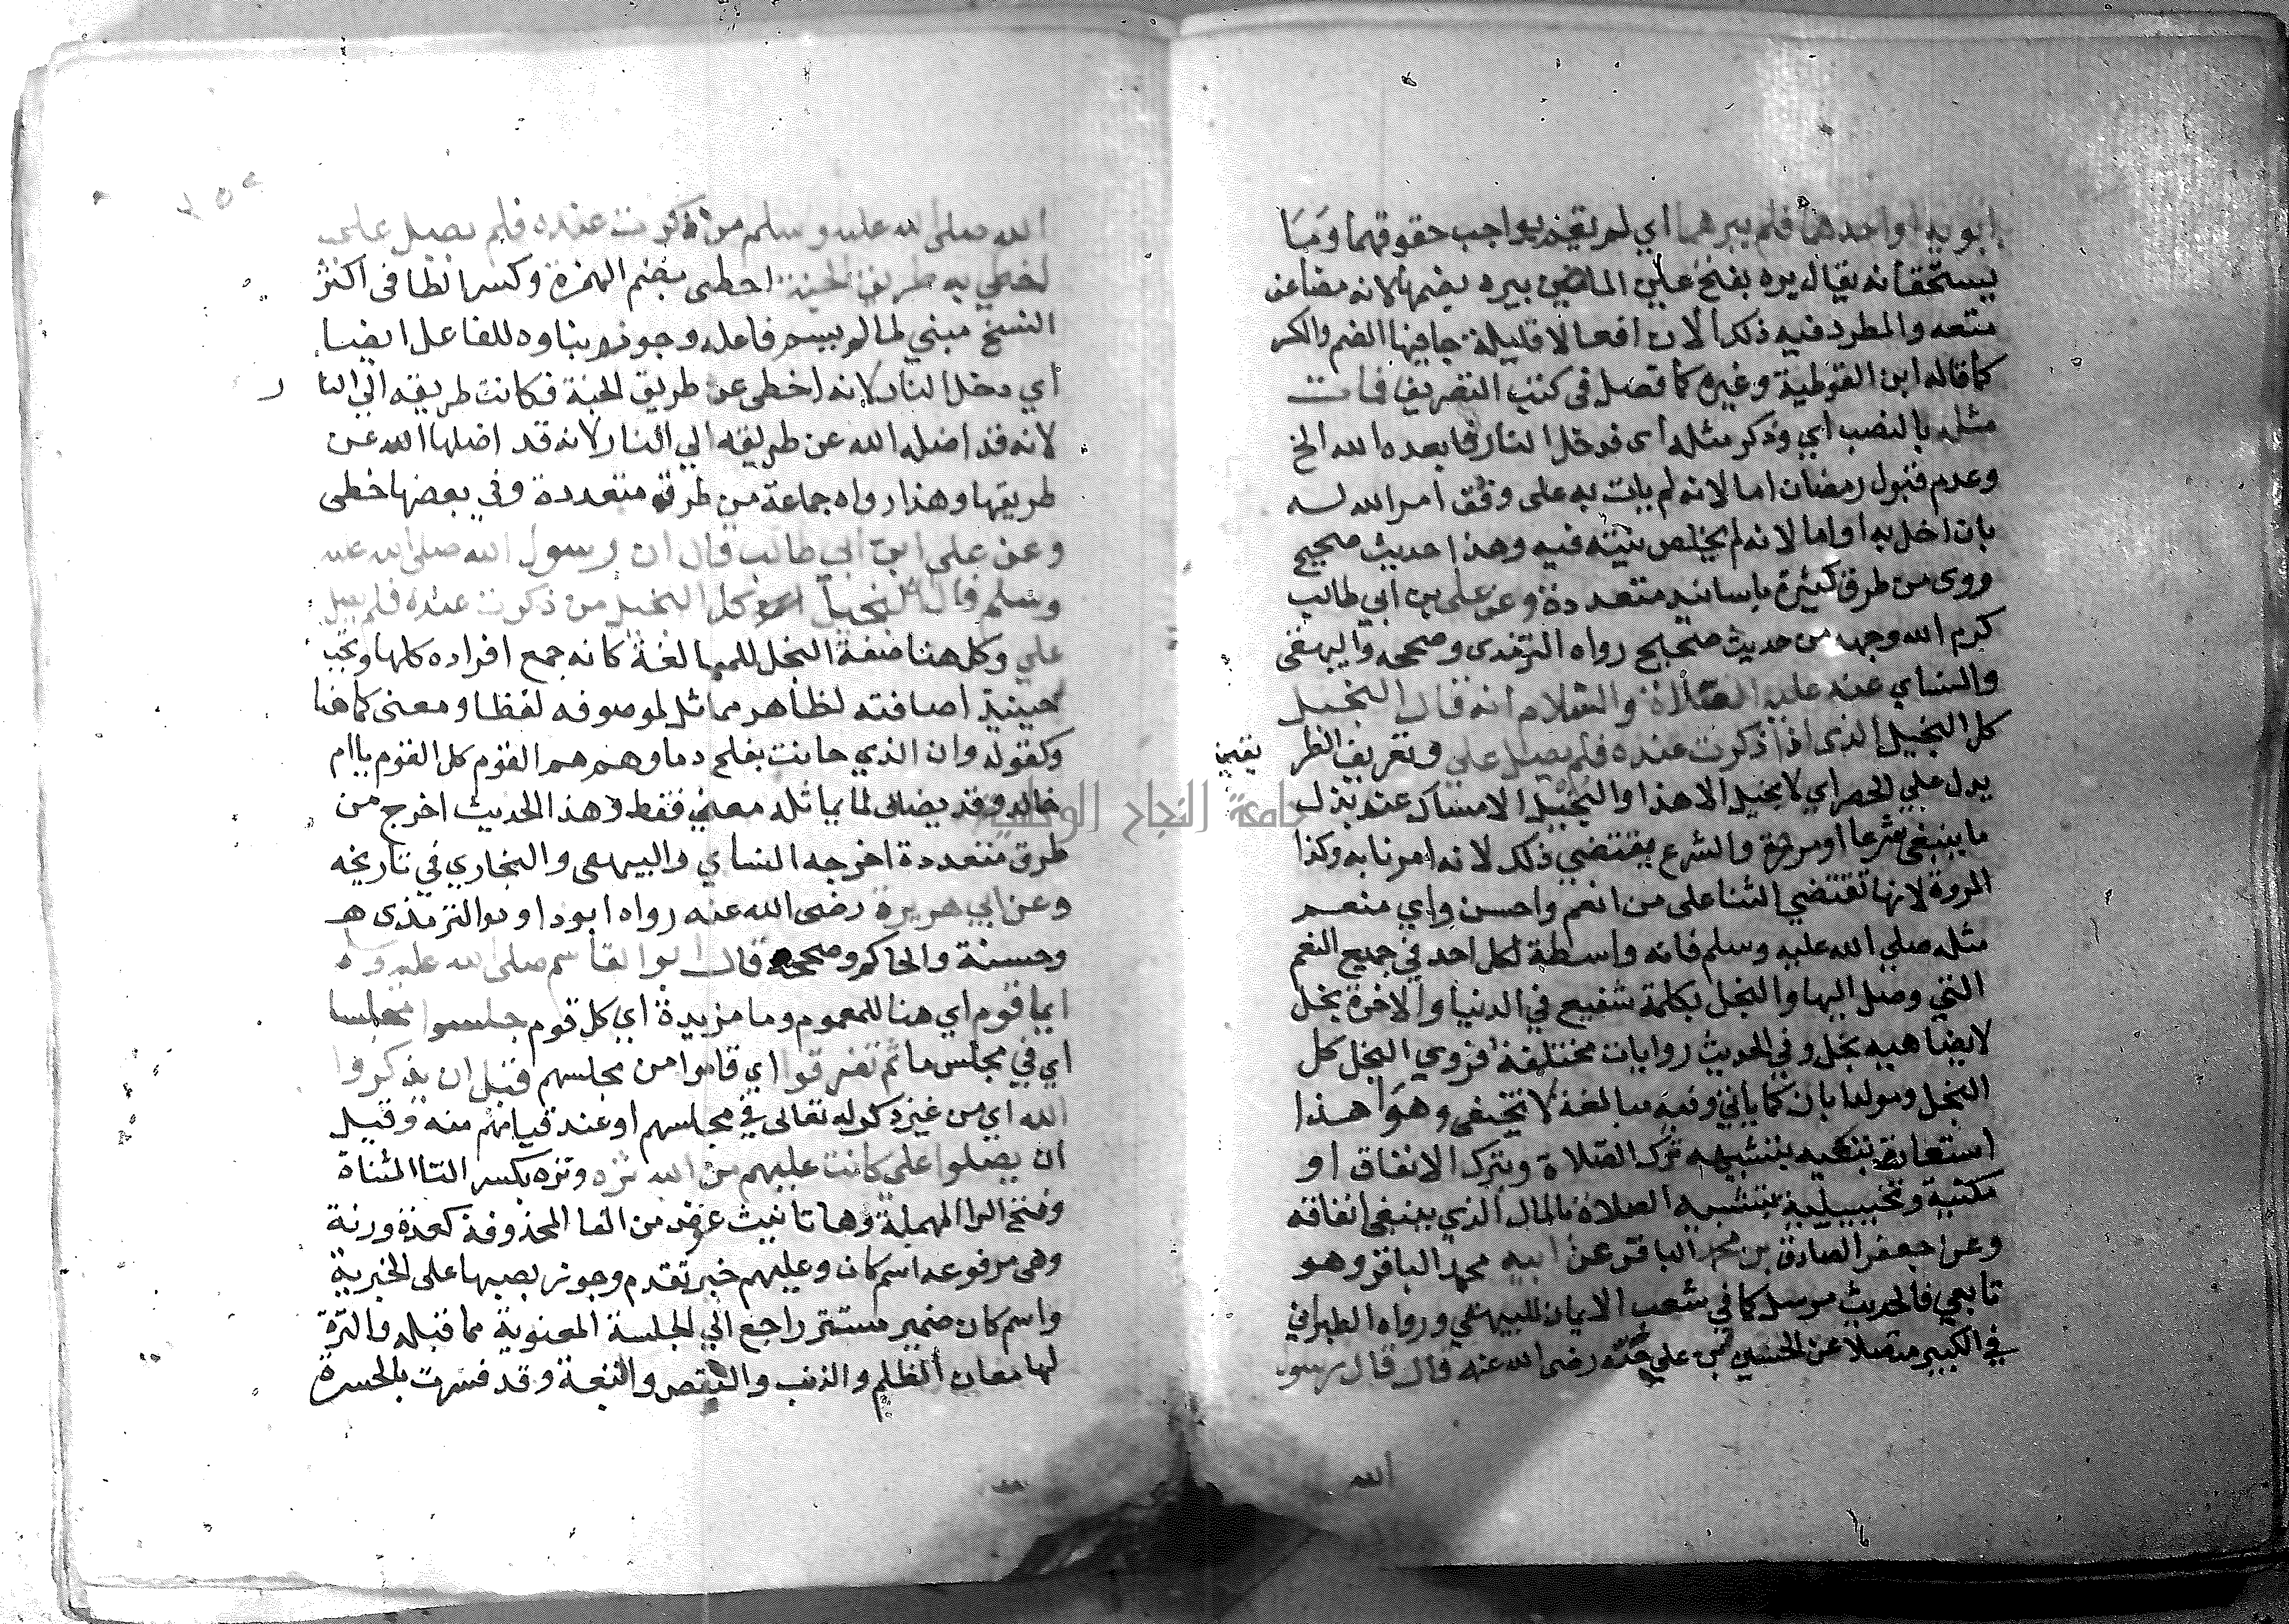 ابويه او احدهما فلم يبرهما اي لم يقم بواجب حقوقهما وما
يستحقانه يقال بره بفتح عين الماضي يبره بضمها لانه مضاعف
متعد والمطرد فيه ذلك الا ان افعالا قليلة جا فيها الضم والكسر
كما قاله ابن القوطية وغيره كما فصل في كتب التصريف فمات
مثله بالنصب اي وذكر مثله اى فدخل النار فابعده الله الخ
وعدم قبول رمضان اما لانه لم يات به على وفق امر الله له
بان اخل به او اما لانه لم يخلص نيته فيه وهذا حديث صحيح
روى من طرق كثيرة باسانيد متعددة وعن على بن ابي طالب
كرم الله وجهه من حديث صحيح رواه الترمذى وصححه والبيهقى
والنساي عنه عليه الصلاة والسلام انه قال البخيل
كل البخيل الذى اذا ذكرت عنده فلم يصل علي وتعريف الطر
فين
يدل علي الحصر اي لا بخيل الا هذا والبخل الامساك عند بذل
ما ينبغي شرعا او مروة والشرع يقتضي ذلك لانه امرنا به وكذا
المروة لانها تقتضي الثنا على من انعم واحسن واي منعم
مثله صلي الله عليه وسلم فانه واسطة لكل احد في جميع النعم
التي وصل اليها والبخل بكلمة شفيع في الدنيا والاخرة بخل
لا يضاهيه بخل وفي الحديث روايات مختلفة فروي البخل كل
البخل كما ياتي وفيه مبالغة لا تخفى وهو هذا
استعارة بتشبيه ترك الصلاة وبترك الانفاق او
مكنية وتخييلية بتشبيه الصلاة بالمال الذي ينبغي انفاقه
وعن جعفر الصادق بن محمد الباقر عن ابيه محمد الباقر وهو
تابعي فالحديث مرسل كما في شعب الايمان للبيهقي ورواه الطبراني
في الكبير متصلا عن الحسين بن علي رضى الله عنه قال قال رسول
الله
الله صلى الله عليه وسلم من ذكرت عنده فلم يصل علي
اخطي به طريق الجنة اخطى بضم الهمزة وكسر الطا في اكثر
النسخ مبني لما لم يسم فاعله وجوز بناوه للفاعل ايضا
اي دخل النار لانه اخطى عن طريق الجنة فكانت طريقه الي النا
ر
لانه قد اضله الله عن طريقه الي النار لانه قد اضلها الله عن
طريقها وهذا رواه جماعة من طرق متعددة وفي بعضها خطى
وعن على ابن ابي طالب قال ان رسول الله صلى الله عليه
وسلم قال البخيل كل البخيل من ذكرت عنده فلم يصل
علي وكل هنا صفة البخل للمبالغة كانه جمع افراده كلها ويجب
حينيذ اضافته لظاهر مماثل لموصوفه لفظا ومعنى كما هنا
وكقوله وان الذي حانت بفلج دماوهم هم القوم كل القوم يا ام
خالد وقد يضاف لما يماثله معني فقط وهذا الحديث اخرج من
طرق متعددة اخرجه النساي والبيهقى والبخاري في تاريخه
وعن ابي هريرة رضى الله عنه رواه ابو داود والترمذى
وحسنه والحاكم وصححه قال ابو القاسم صلى الله عليه وسلم
ايما قوم اي هنا للعموم وما مزيدة اي كل قوم جلسوا مجلسا
اي في مجلس ما ثم تفرقوا اي قاموا من مجلسهم قبل ان يذكروا
الله اي من غير ذكر له تعالى في مجلسهم او عند قيامهم منه وقبل
ان يصلوا علي كانت عليهم من الله ترة وترة بكسر التا المثناة
وفتح الرا المهملة وها تانيث عوض من الفا المحذوفة كعدة وزنة
وهى مرفوعه اسم كان وعليهم خبر تقدم وجوز نصبها على الخبرية
واسم كان ضمير مستتر راجع الي الجلسة المعنوية مما قبله والترة
لها معان الظلم والذنب والنقص والتبعة وقد فسرت بالحسرة
جامعة النجاح الوطنية